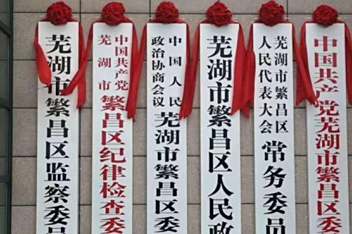 中国共产党芜湖市繁昌区委
芜湖市繁昌区
人民代表大会
常务委员
芜湖市繁昌区人民政
中国人民
政治协商会议
芜湖市繁昌区委
中国共产党
芜湖市
繁昌区纪律检查委
芜湖市繁昌区监察委